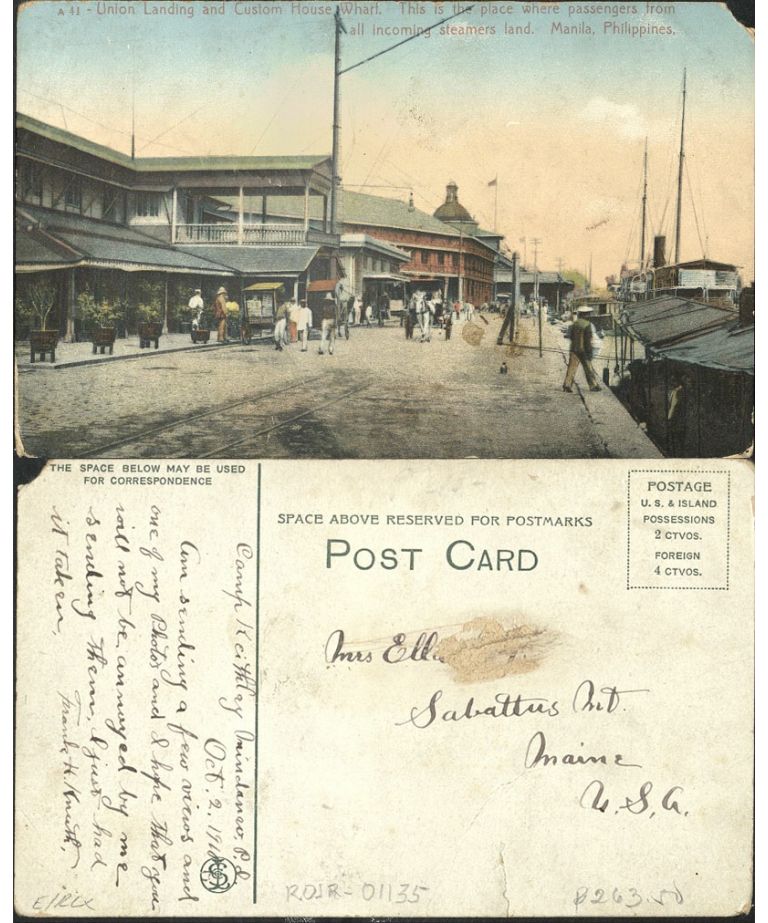 A 41 - Union Landing and Custom House Wharf. This is the place where passengers from
all incoming steamers land. Manila, Philippines.
THE SPACE BELOW MAY BE USED
FOR CORRESPONDENCE
Camp Keithley Mindanao, P.I.
Oct. 2. 1910
Am sending a few views and
one of my Photos and I hope that you
will not be annoyed by me
sending them, I just had
it taken,
Frank H.
SPACE ABOVE RESERVED FOR POSTMARKS
POST CARD
POSTAGE
U. S. & ISLAND
POSSESSIONS
2 CTVOS.
FOREIGN
4 CTVOS.
Mrs
Sabattus Mt.
Maine
U.S.A.
01135